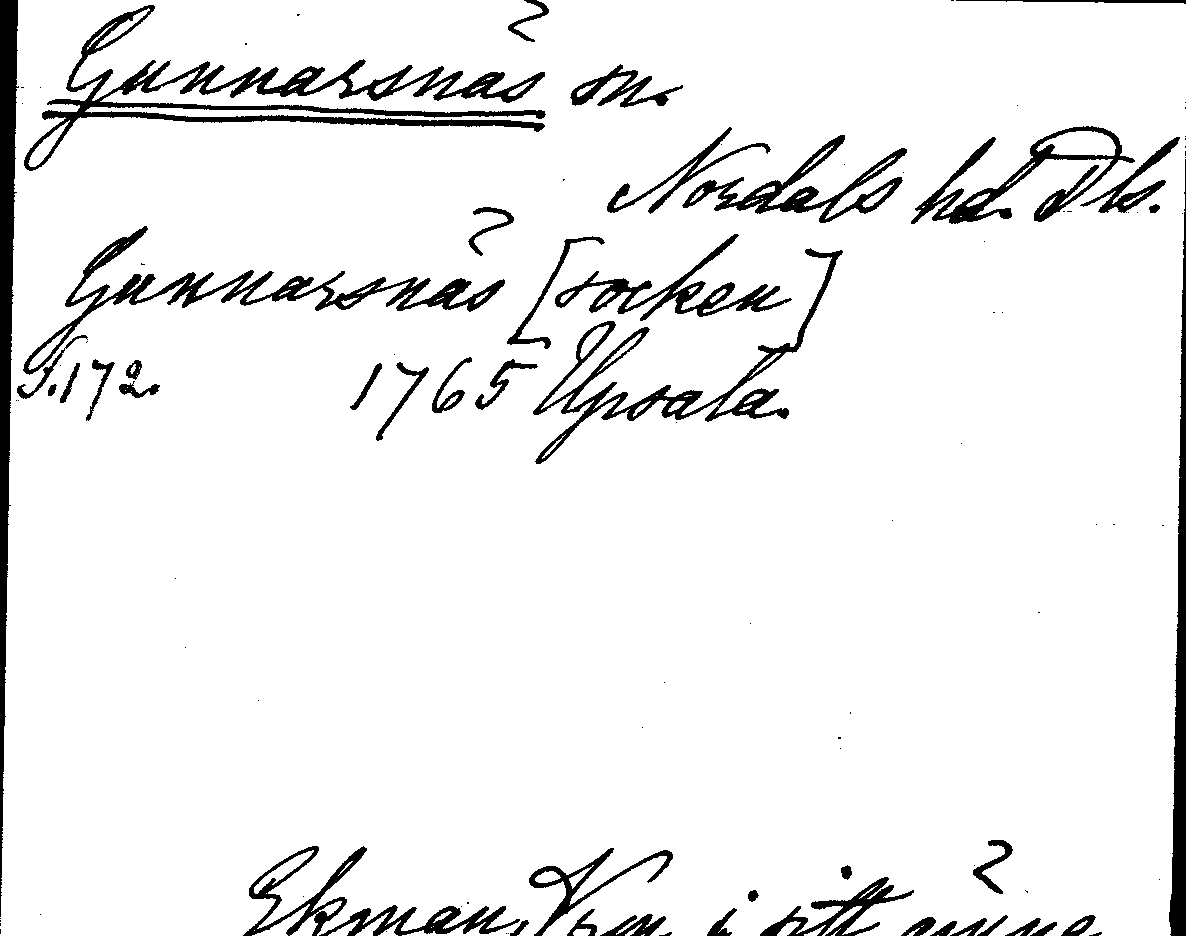 Gunnarsnäs sn.
Nordals hd. Dls.
Gunnarsnäs [socken]
S.172. 1765 Upsala.
Ekman, i sitt ämne